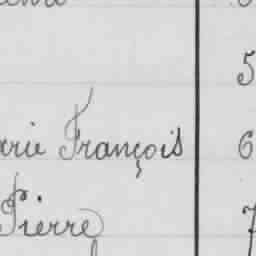 5
François 6
Pierre 7